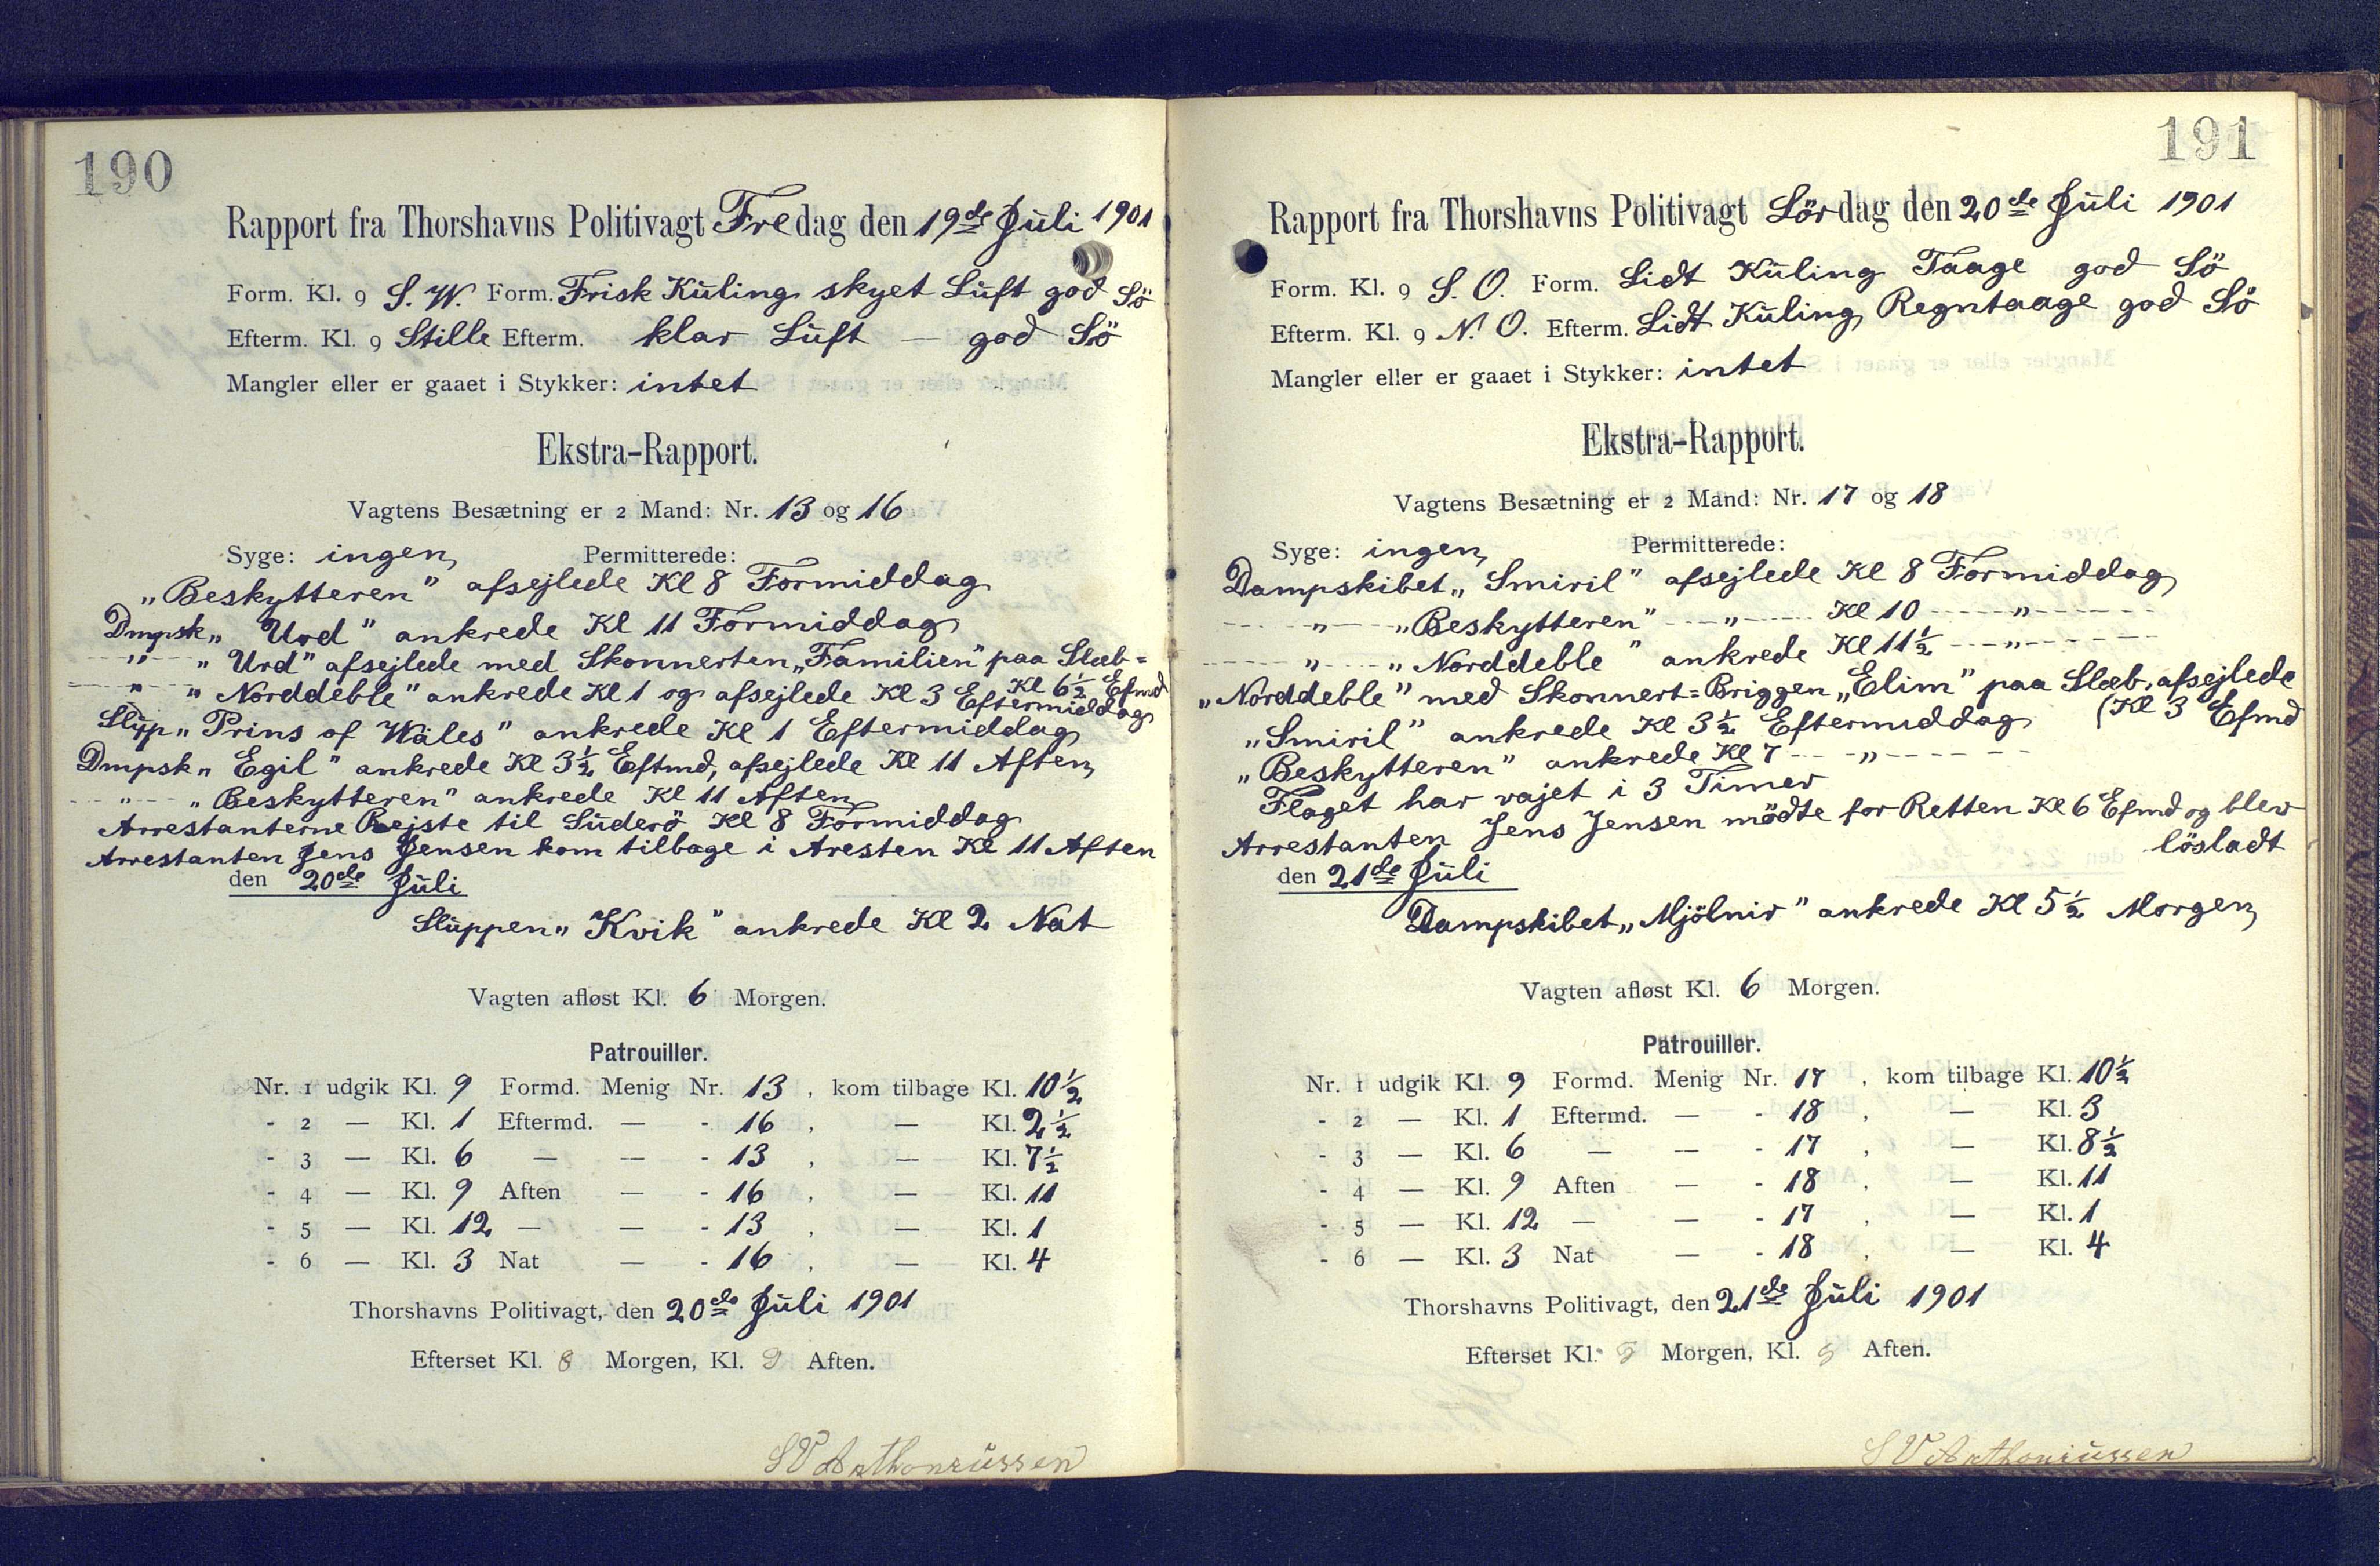 190
Rapport fra Thorshavns Politivagt Fredag den 19de Juli 1901
Form. Kl. 9 S. W. Form. Frisk Kuling skyet Luft god Sö
Efterm. Kl. 9 Stille Efterm. klar Luft — god Sö
Mangler eller er gaaet i Stykker: intet
Ekstra-Rapport.
Vagtens Besætning er 2 Mand: Nr. 13 og 16
Syge: ingen Permitterede:
„Beskytteren" afsejlede Kl 8 Formiddag
Dmpsk „Urd" ankrede Kl 11 Formiddag
— " — „Urd" afsejlede med Skonnerten „Familien" paa Slæb=
Kl 6½ Efmd
— " — „Norddeble" ankrede Kl 1 og afsejlede Kl 3 Eftermiddag
Slup „Prins of Wales" ankrede Kl 1 Eftermiddag
Dmpsk „Egil" ankrede Kl 3½ Eftmd, afsejlede Kl 11 Aften
— " — „Beskytteren" ankrede Kl 11 Aften
Arrestanterne Rejste til Suderö Kl 8 Formiddag
Arrestanten Jens Jensen kom tilbage i Aresten Kl 11 Aften
den 20de Juli
Sluppen „Kvik" ankrede Kl 2 Nat
Vagten afløst Kl. 6 Morgen.
Patrouiller.
Nr. 1 udgik Kl. 9 Formd. Menig Nr. 13, kom tilbage Kl. 10½
- 2 — Kl. 1 Eftermd. — - 16, — Kl. 2½
- 3 — Kl. 6 — — - 13, — Kl. 7½
- 4 — Kl. 9 Aften — - 16, — Kl. 11
- 5 — Kl. 12 — — - 13, — Kl. 1
- 6 — Kl. 3 Nat — - 16, — Kl. 4
Thorshavns Politivagt, den 20de Juli 1901
Efterset Kl. 8 Morgen, Kl. Aften.
SV Anthoniussen
191
Rapport fra Thorshavns Politivagt Lördag den 20de Juli 1901
Form. Kl. 9 S. O. Form. Lidt Kuling Taage god Sö
Efterm. Kl. 9 N. O. Efterm. Lidt Kuling Regntaage god Sö
Mangler eller er gaaet i Stykker: intet
Ekstra-Rapport.
Vagtens Besætning er 2 Mand: Nr. 17 og 18
Syge: ingen Permitterede:
Dampskibet „Smiril" afsejlede Kl 8 Formiddag
— " — „Beskytteren" — " — Kl 10 — " —
— " — „Norddeble" ankrede Kl 11½ — " —
„Norddeble" med Skonnert=Briggen „Elim" paa Slæb, afsejlede
(Kl 3 Efmd
„Smiril" ankrede Kl 3½ Eftermiddag
„Beskytteren" ankrede Kl 7 — " —
Flaget har vajet i 3 Timer
Arrestanten Jens Jensen mödte for Retten Kl 6 Efmd og blev
lösladt
den 21de Juli
Dampskibet „Mjölnir" ankrede Kl 5½ Morgen
Vagten afløst Kl. 6 Morgen.
Patrouiller.
Nr. 1 udgik Kl. 9 Formd. Menig Nr. 17, kom tilbage Kl. 10½
- 2 — Kl. 1 Eftermd. — - 18, — Kl. 3
- 3 — Kl. 6 — — - 17, — Kl. 8½
- 4 — Kl. 9 Aften — - 18, — Kl. 11
- 5 — Kl. 12 — — - 17, — Kl. 1
- 6 — Kl. 3 Nat — - 18, — Kl. 4
Thorshavns Politivagt, den 21de Juli 1901
Efterset Kl. Morgen, Kl. Aften.
SV Anthoniussen